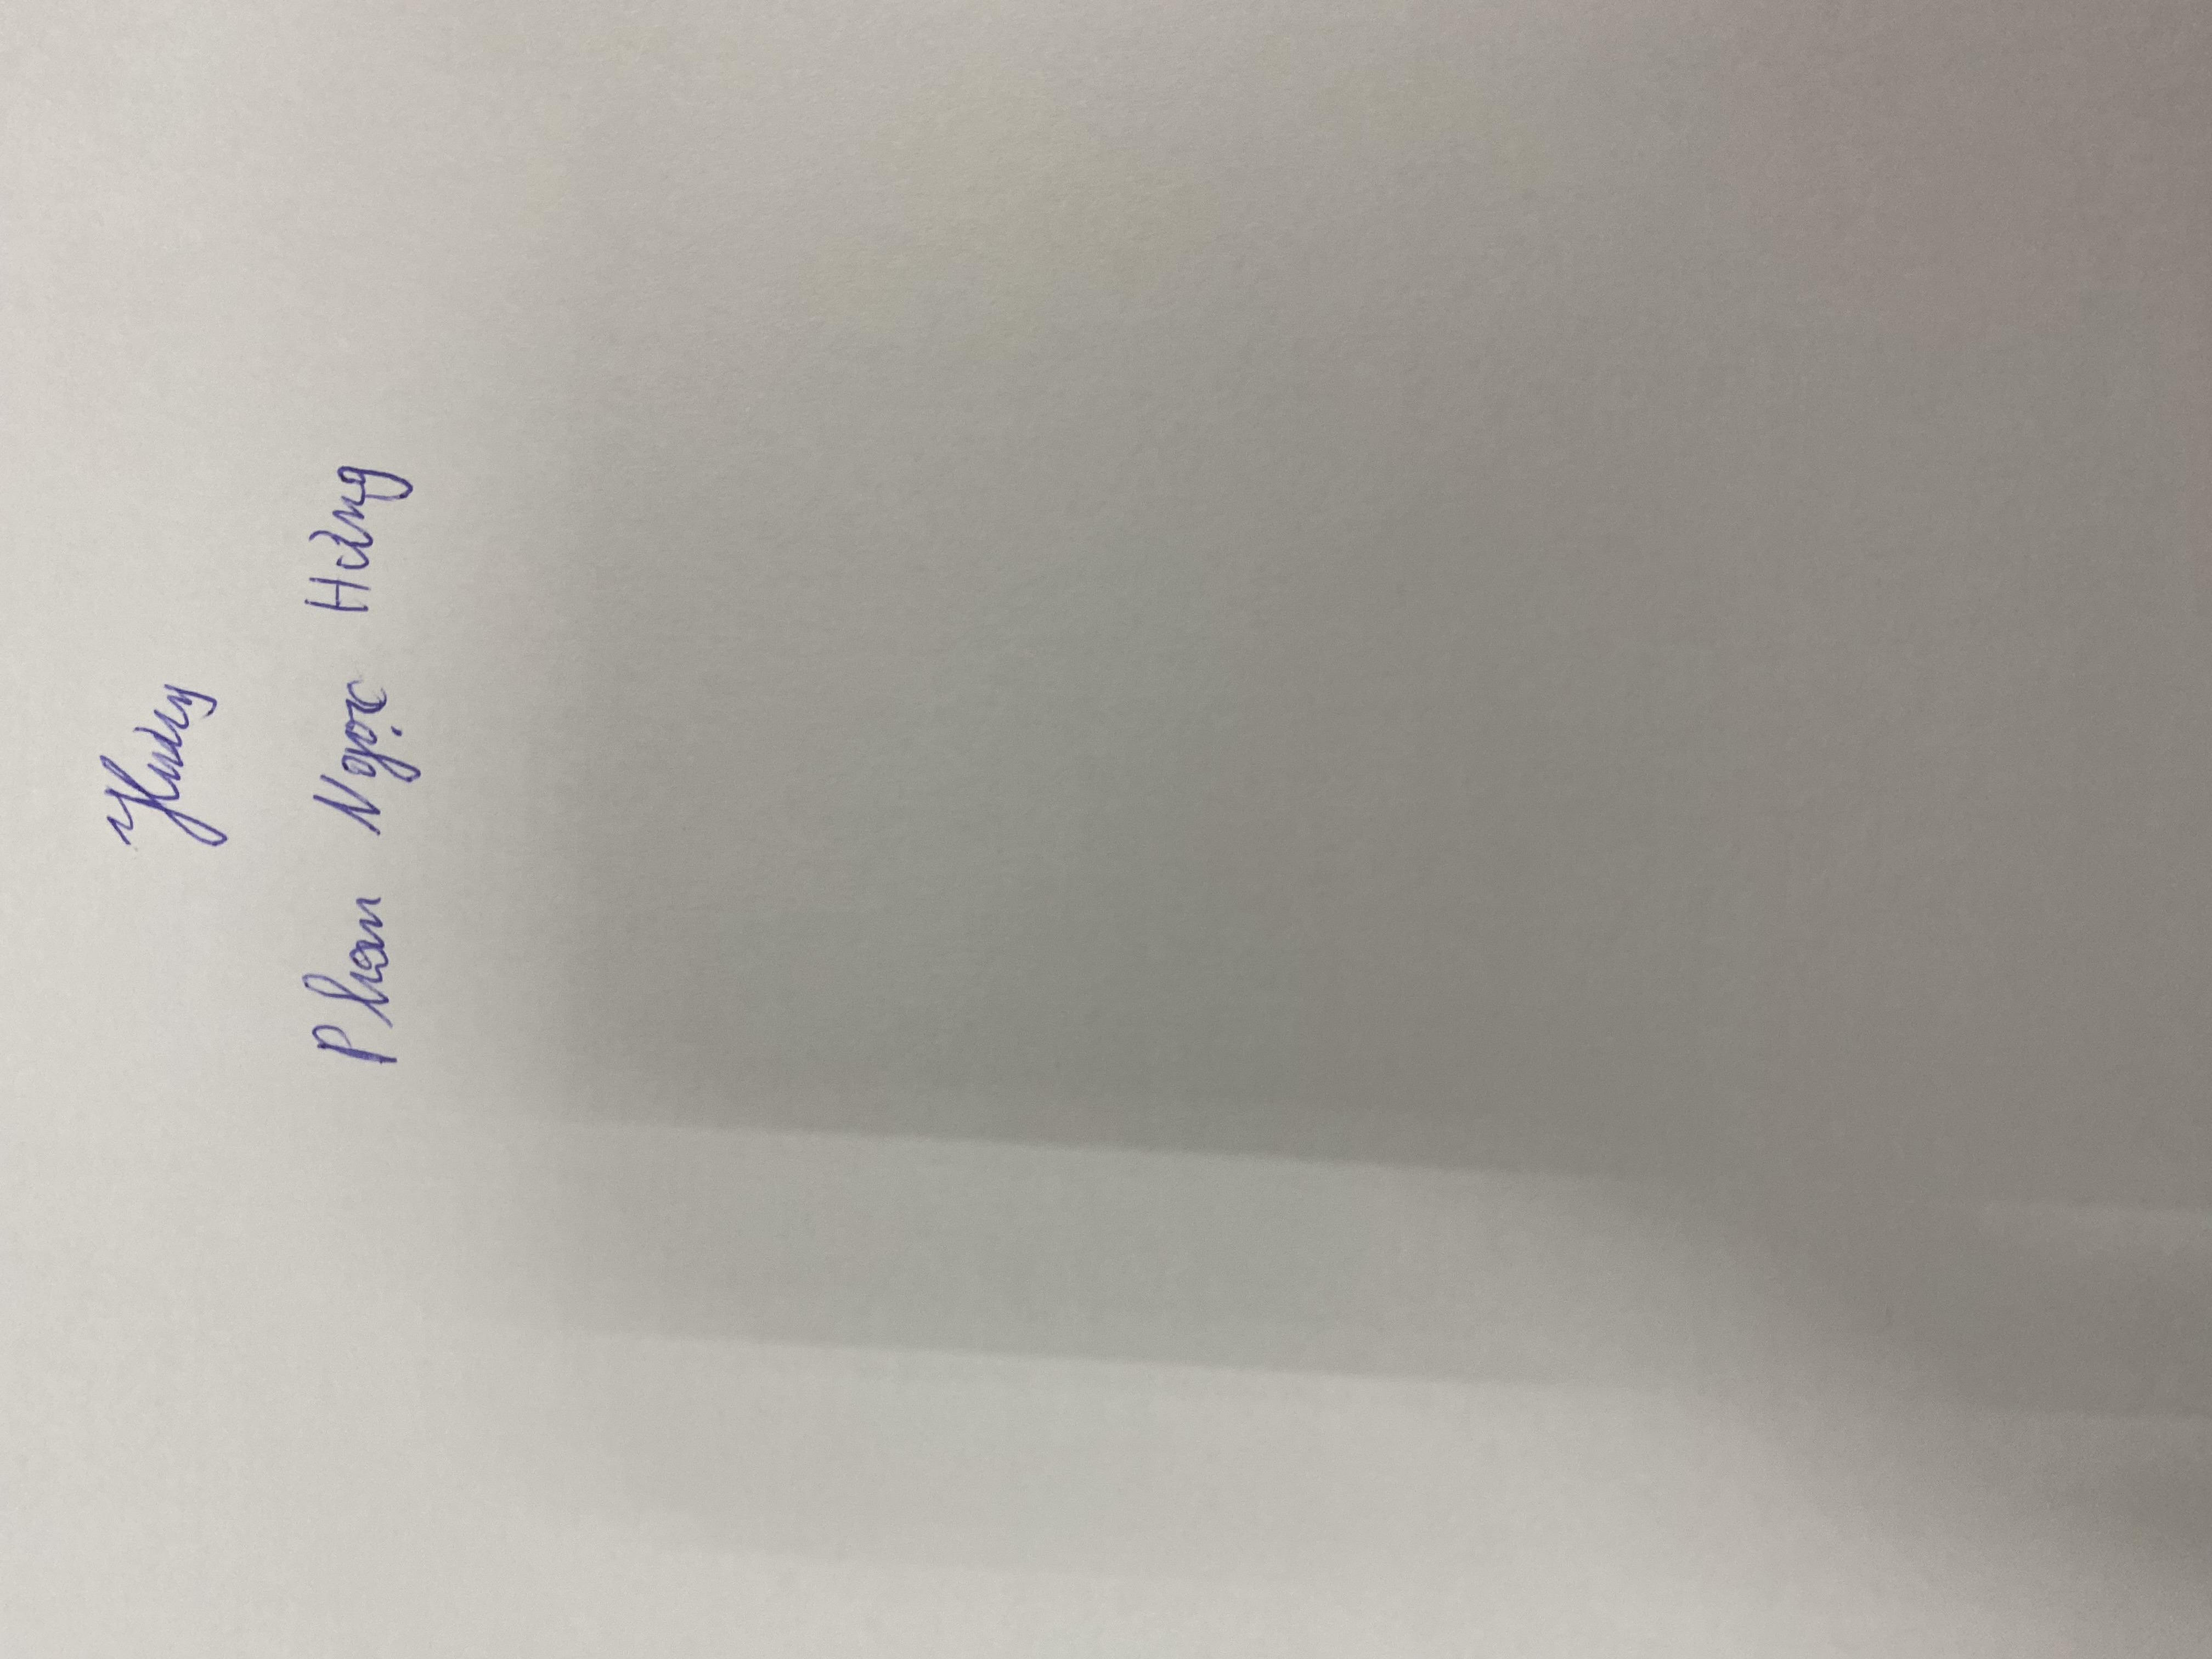 Hùng
Phan Ngọc Hùng